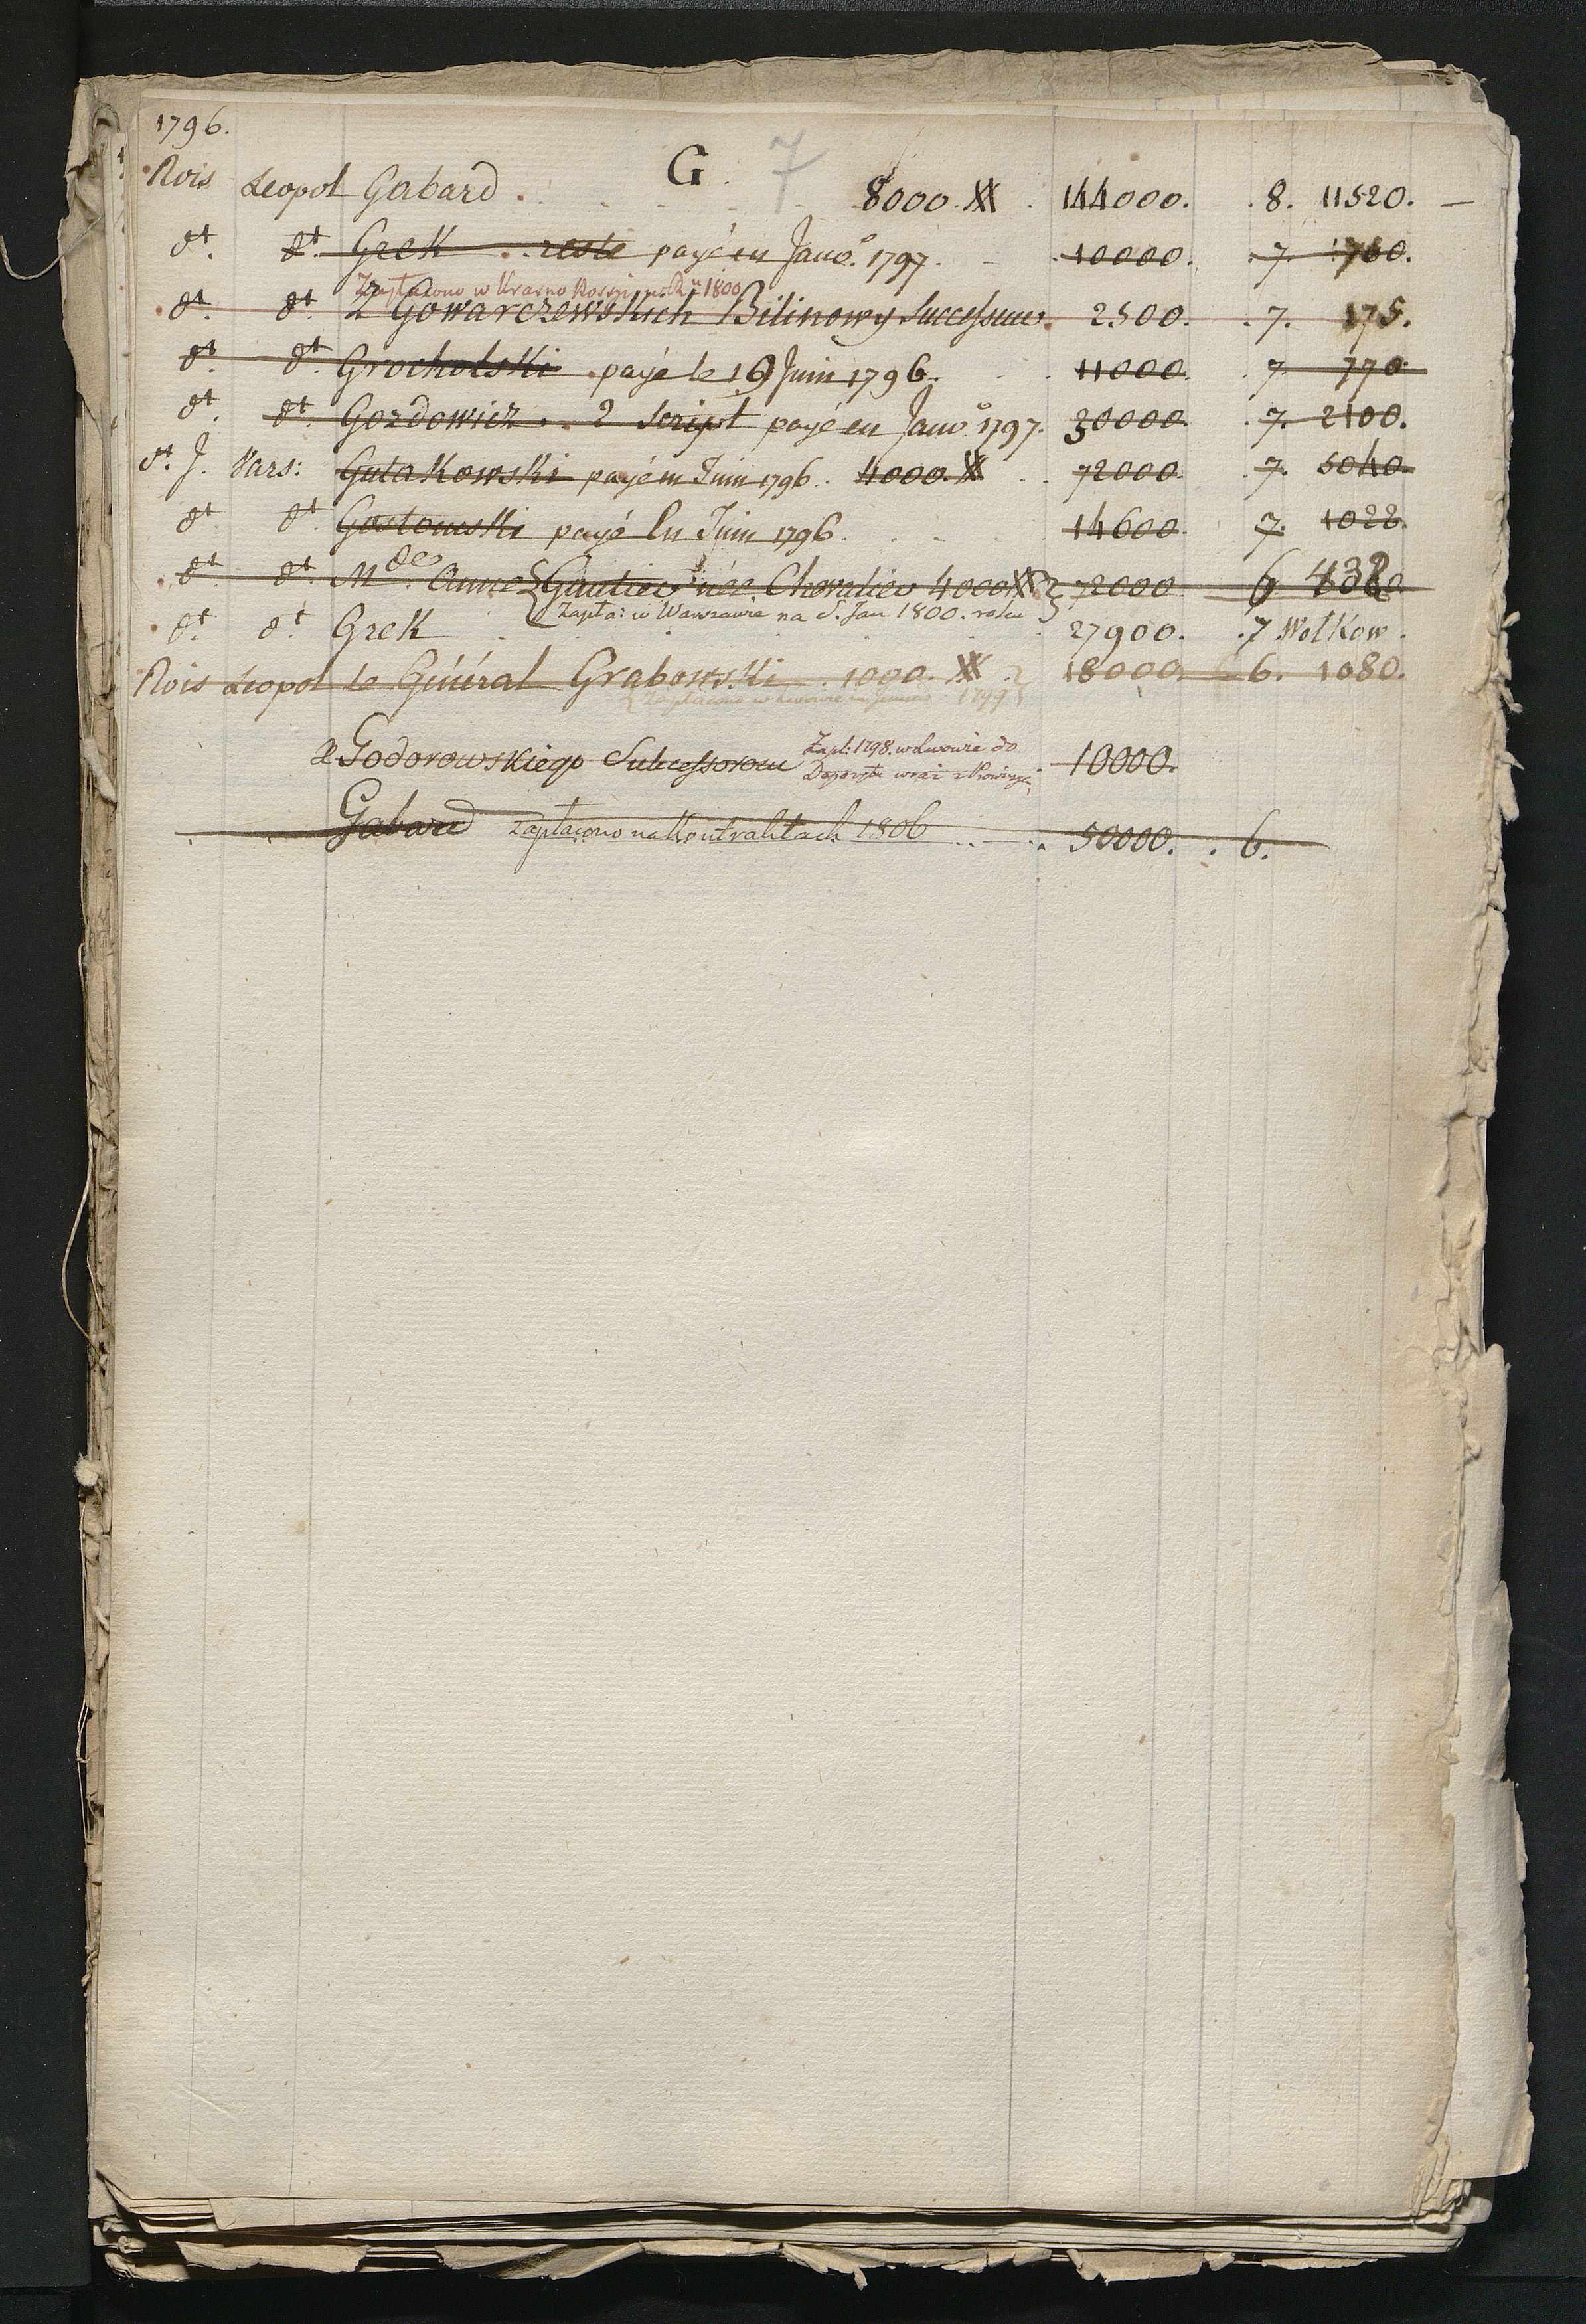 1796.
G. 7
Rois Leopol Gabard . . . . 8000. ## . 144000. . 8. 11520. —
dt. dt. Grek . . reste payé en Janvo. 1797. 10000. . 7. 700.
Zapłacono w Krasno 1800
dt. dt. Z Gowarczewskich Bilinowy Successuw. 2500. . 7. 175.
dt. dt. Grocholski . payé le 16 Juin 1796. 11000. . 7. 770.
dt. dt. Gozdowicz . . 2 Script payé en Janvo 1797. 30000. . 7. 2100.
dt. J. Vars: Gutakowski payé en Juin 1796. 4000. ## . . 72000. . 7. 5040.
dt dt. Gostowski payé En Juin 1796. . . 14600. 7. 1022.
. dt. dt. Mde. Anne Gautier née Chevalier 4000 ## 72000 6 4320
Zapła: w Warszawie na S. Jan 1800. roku
. dt. dt. Grek . . . . 27900. . 7 Wolkow.
Rois Leopol le Général Grabowski . 1000. ## . 18000. 6. 1080.
Zapłacono w Lwowie 1799
Z Godorowskiego Sukcessorow Zapł: 1798. w Lwowie do 10000.
Depozytu wraz z Prowizyą
Gabard Zapłacono na Kontraktach 1806 . . 50000. . 6.